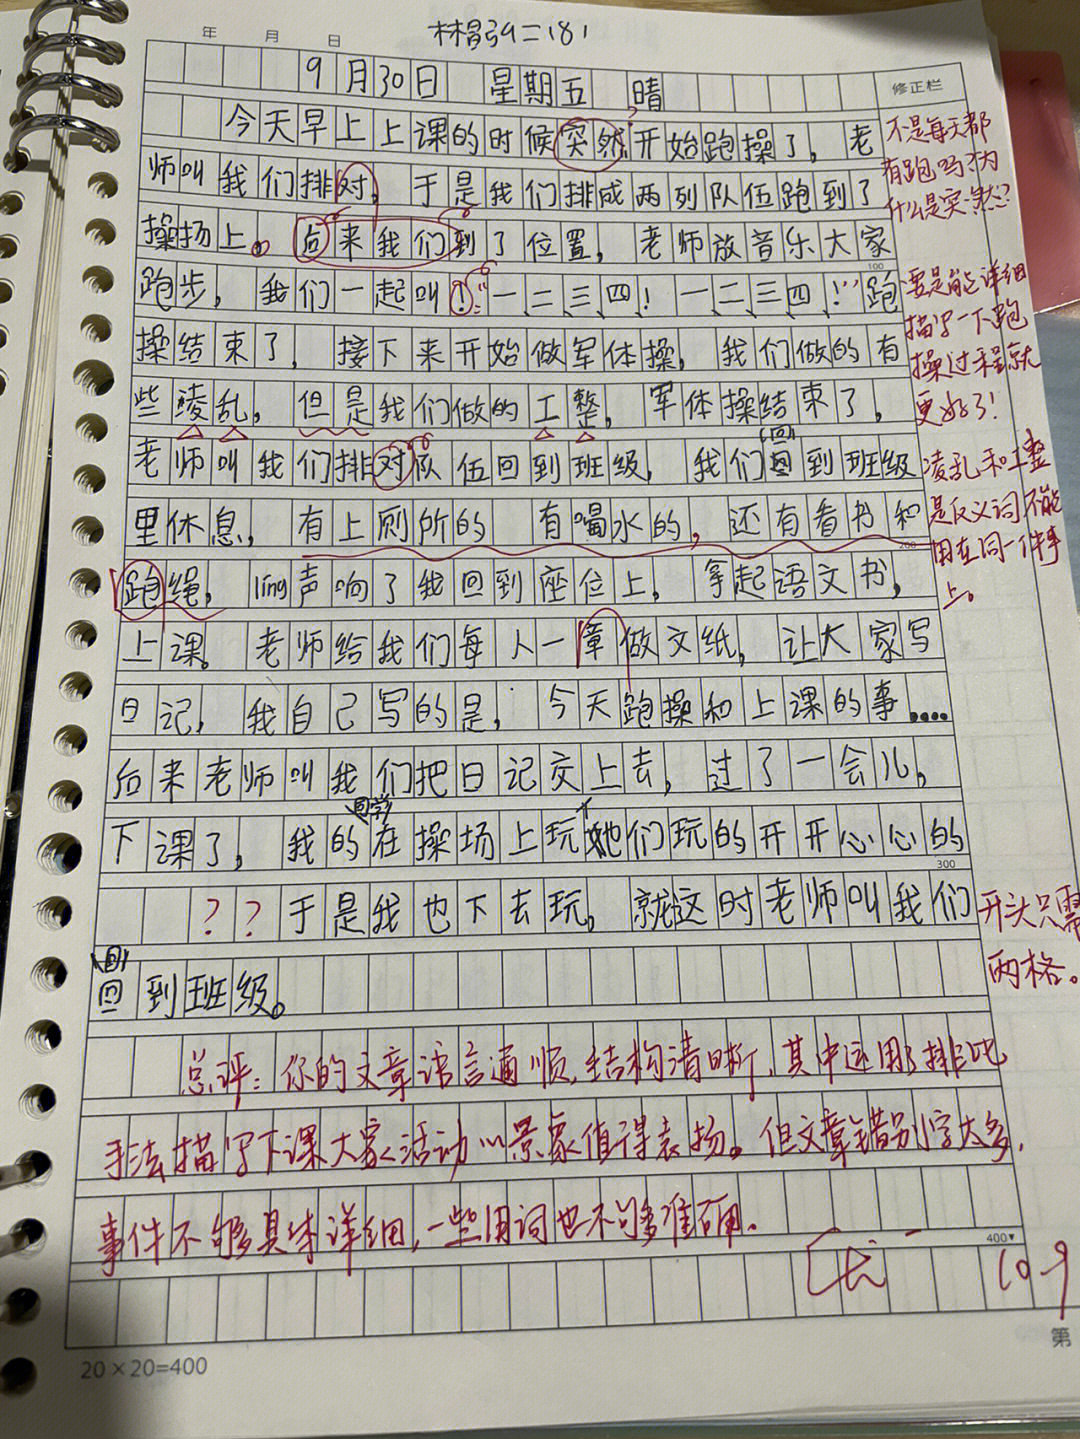 年 月 日
9月30日 星期五 晴
修正栏
今天早上上课的时候突然开始跑操了，老
师叫我们排对，于是我们排成两列队伍跑到了
操场上。后来我们到了位置，老师放音乐大家
100
跑步，我们一起叫！“一、二、三、四！一、二、三、四！”跑
操结束了，接下来开始做军体操，我们做的有
些凌乱，但是我们做的工整，军体操结束了，
老师叫我们排对队伍回到班级，我们回到班级
里休息，有上厕所的 有喝水的，还有看书和
200
跑绳，ling声响了我回到座位上，拿起语文书，
上课。老师给我们每人一章做文纸，让大家写
日记，我自己写的是，今天跑操和上课的事....
后来老师叫我们把日记交上去，过了一会儿，
下课了，我的同学在操场上玩，她们玩的开开心心的
300
？？于是我也下去玩，就这时老师叫我们
回到班级。
不是每天都
有跑吗？为
什么是突然？
要是能详细
描写一下跑
操过程就
更好了！
凌乱和工整
是反义词不能
用在同一件事
上。
开头只需
两格。
总评：你的文章语言通顺，结构清晰，其中运用了排比
手法描写下课大家活动的景象值得表扬。但文章错别字太多，
事件不够具体详细，一些用词也不够准确。
400
10.9
20×20=400
第